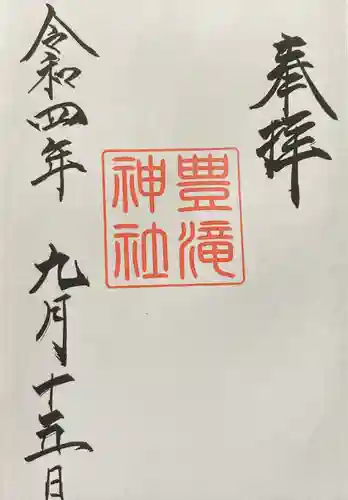 奉拝
豊滝
神社
令和四年九月十五日